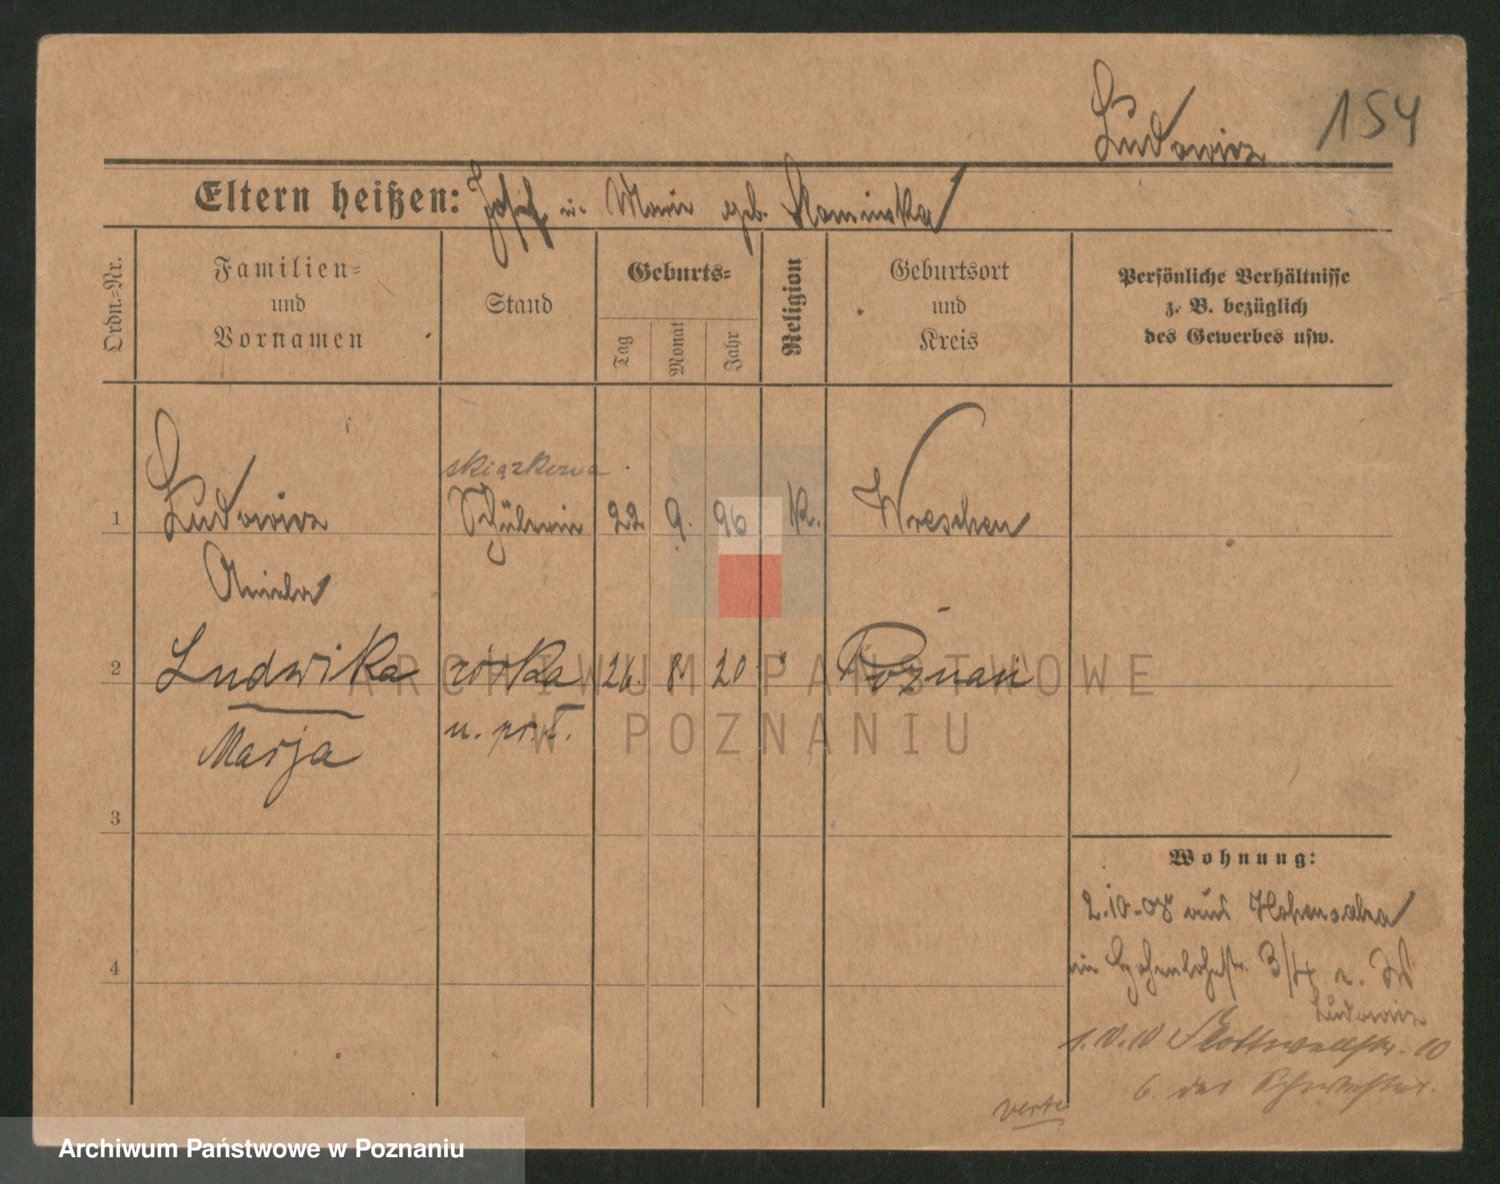 Ludowicz 154
Eltern heißen: Josef u. Marie geb. Slominska
Ordn.-Nr.
Familien-
und
Vornamen
Stand
Geburts-
Tag
Monat
Jahr
Religion
Geburtsort
und
Kreis
Persönliche Verhältnisse
z. B. bezüglich
des Gewerbes usw.
1 Ludowicz Schülerin 22 9. 96 K. Wreschen
Aniela
2 Ludwika córka 26. 8 20 Poznań
Marja
3
4
Wohnung:
2.10.08 aus Hohensalza
3/4
Ludowicz
Flottwellstr. 10
6. der Schwester.
verte
ARCHIWUM PAŃSTWOWE
W POZNANIU
Archiwum Państwowe w Poznaniu